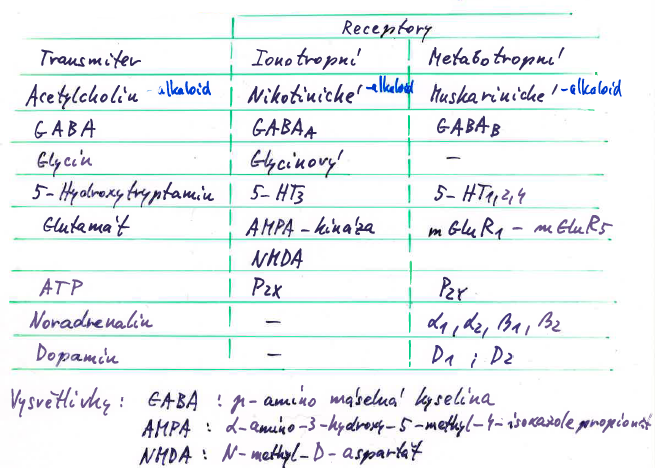 Receptory
Transmiter Ionotropní Metabotropní
Acetylcholin - alkaloid Nikotinické - alkaloid Muskarinické - alkaloid
GABA GABA_A GABA_B
Glycin Glycinový -
5-Hydroxytryptamin 5-HT3 5-HT1,2,4
Glutamát AMPA-kináza mGluR1 - mGluR5
NMDA
ATP P2X P2Y
Noradrenalin - α1, α2, β1, β2
Dopamin - D1 ; D2
Vysvětlivky: GABA : γ-amino máselná kyselina
AMPA : α-amino-3-hydroxy-5-methyl-4-isoxazole propionát
NMDA : N-methyl-D-aspartát